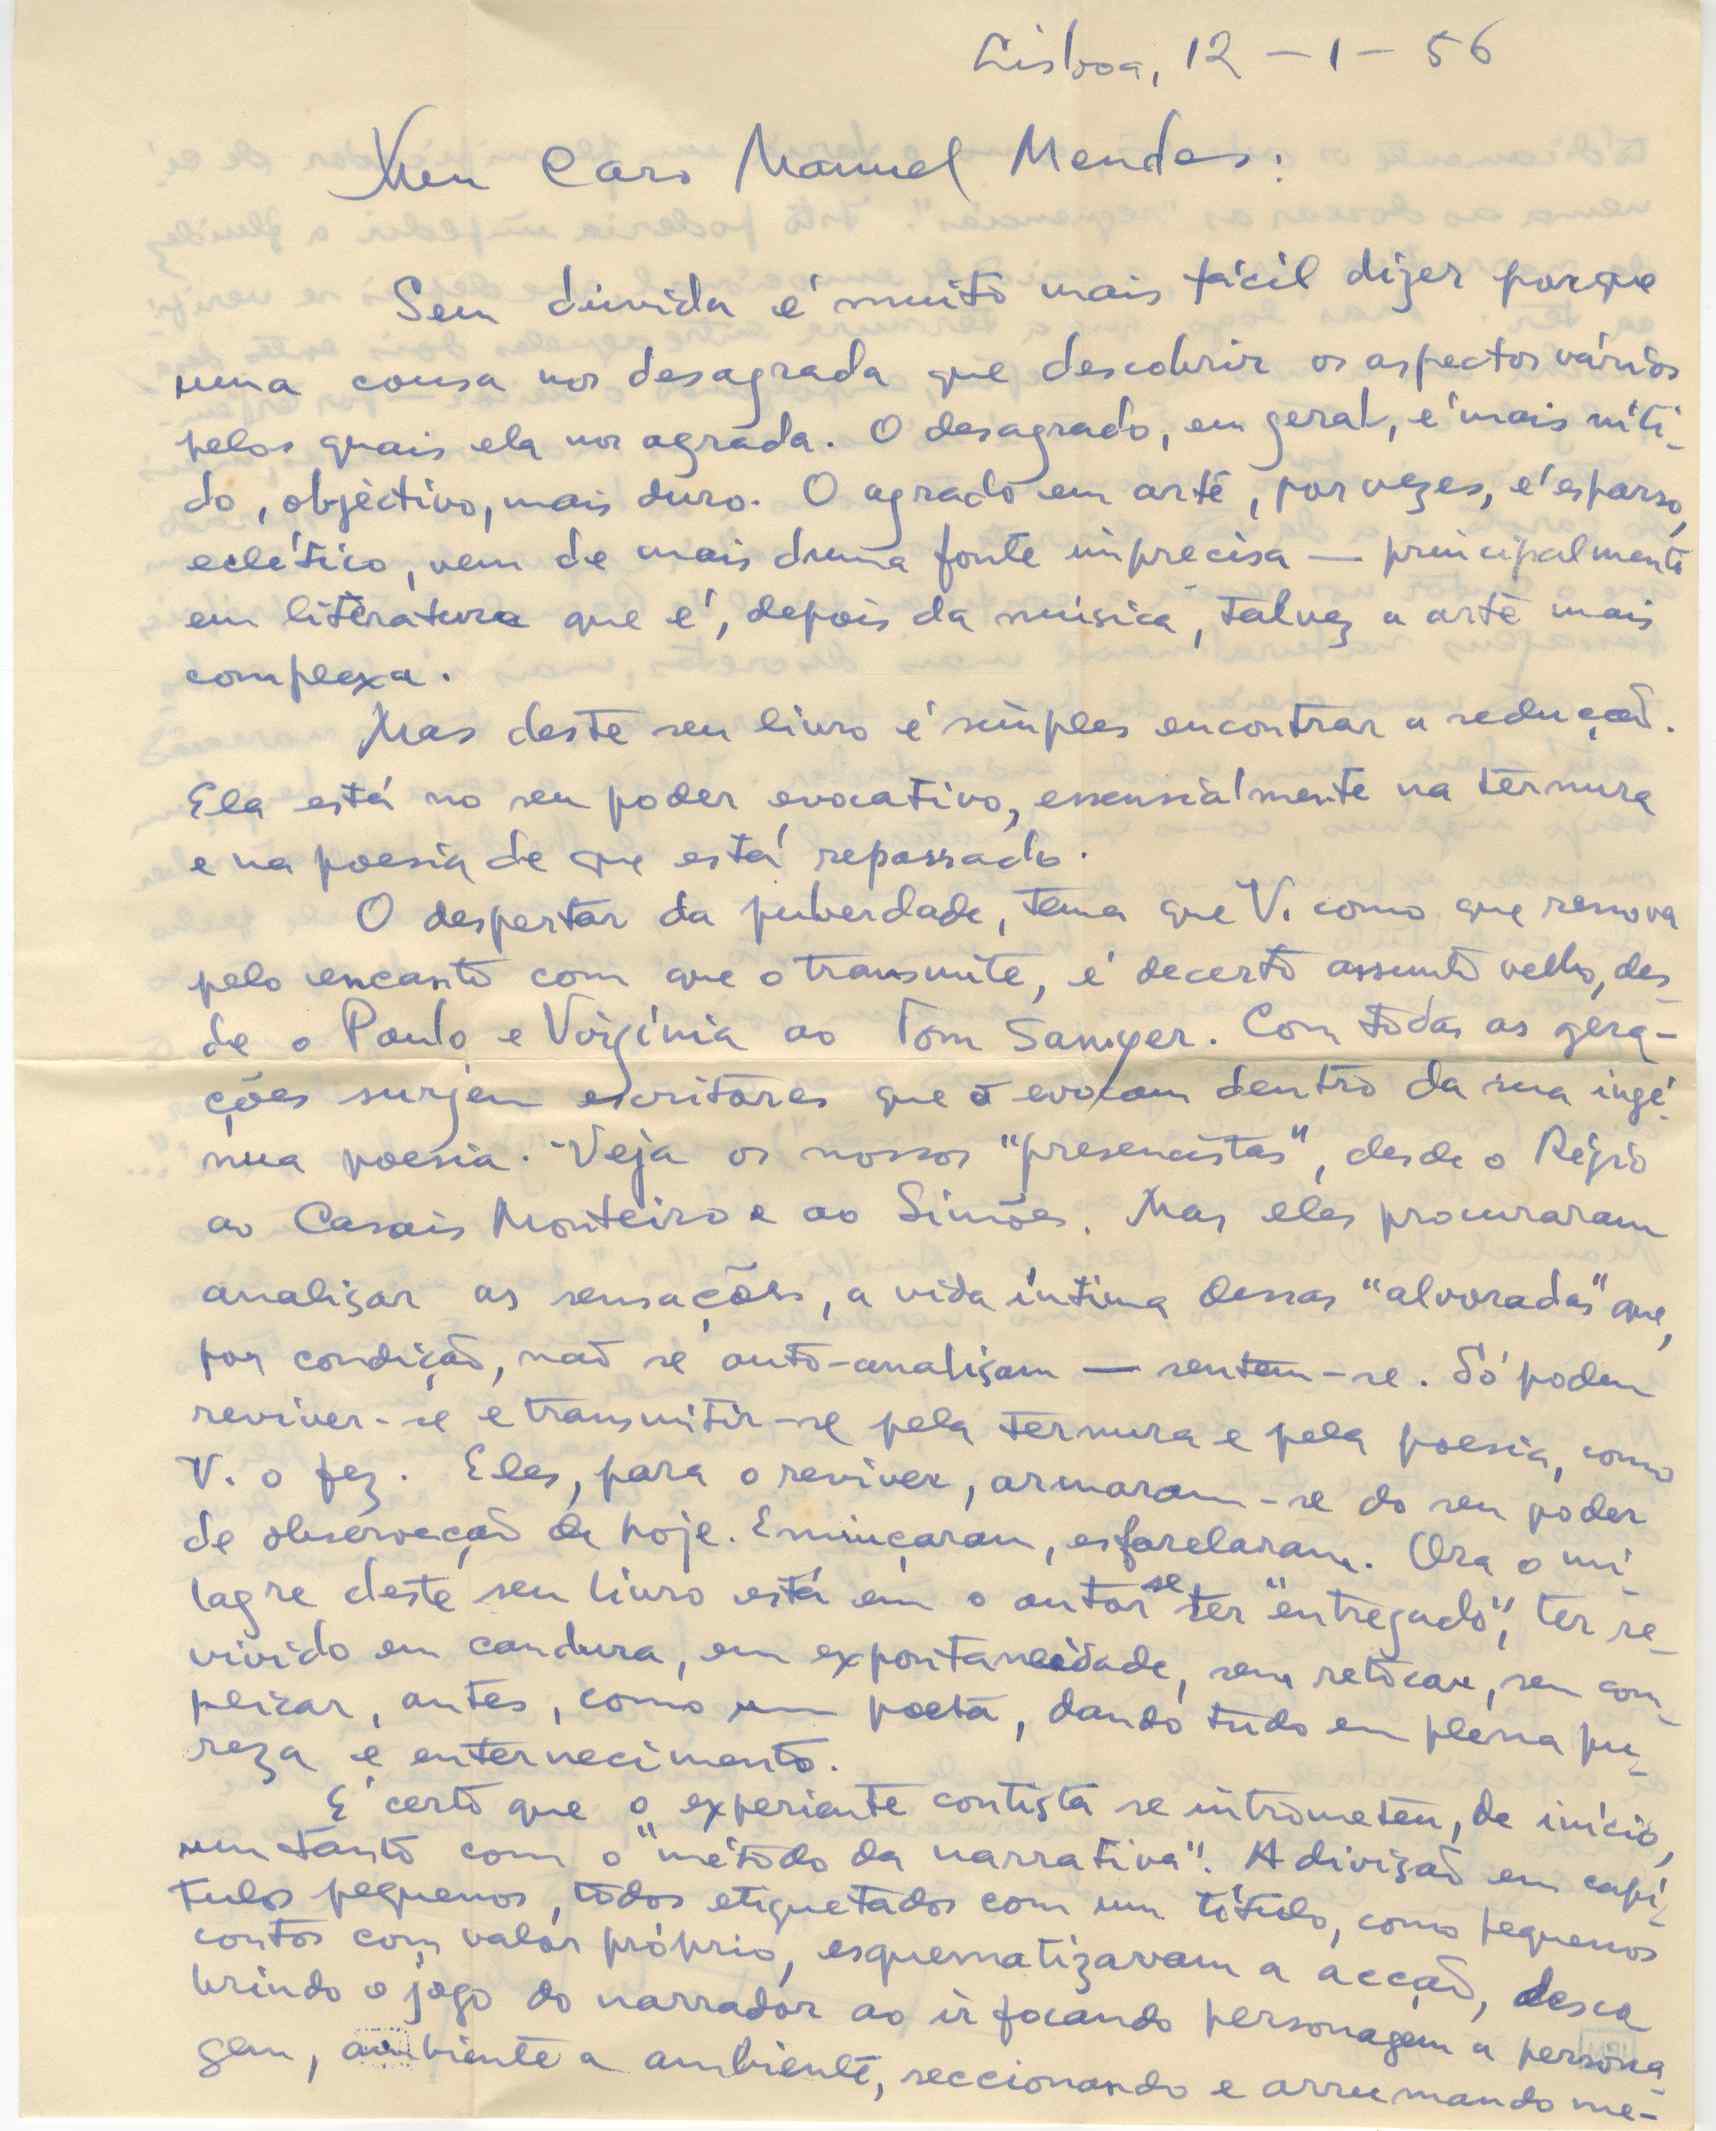 Lisboa, 12 - 1 - 56
Meu Caro Manuel Mendes:
Sem dúvida é muito mais fácil dizer porque
uma cousa nos desagrada que descobrir os aspectos vários
pelos quais ela nos agrada. O desagrado, em geral, é mais níti-
do, objectivo, mais duro. O agrado em arte, por vezes, é esparso,
eclético, vem de mais duma fonte imprecisa — principalmente
em literatura que é, depois da música, talvez a arte mais
complexa.
Mas deste seu livro é simples encontrar a sedução.
Ela está no seu poder evocativo, essensialmente na ternura
e na poesia de que está repassado.
O despertar da puberdade, tema que V. como que renova
pelo encanto com que o transmite, é decerto assunto velho, des-
de o Paulo e Virgínia ao Tom Sawyer. Com todas as gera-
ções surjem escritores que o evocam dentro da sua ingé-
nua poesia. Veja os nossos "presencistas", desde o Régio
ao Casais Monteiro e ao Simões. Mas eles procuraram
analizar as sensações, a vida íntima dessas "alvoradas" que,
por condição, não se auto-analizam — sentem-se. Só podem
reviver-se e transmitir-se pela ternura e pela poesia, como
V. o fez. Eles, para o reviver, armaram-se do seu poder
de observação de hoje. Emiuçaram, esfarelaram. Ora o mi-
lagre deste seu livro está em o autor se ter "entregado", ter re-
vivido em candura, em expontaneidade, sem retocar, sem com-
plicar, antes, como um poeta, dando tudo em plena pu-
reza e enternecimento.
É certo que o experiente contista se intrometeu, de início,
um tanto com o "método da narrativa". A divizão em capí-
tulos pequenos, todos etiquetados com um título, como pequenos
contos com valor próprio, esquematizavam a acção, desco
brindo o jogo do narrador ao ir focando personagem a persona-
gem, ambiente a ambiente, seccionando e arrumando me-